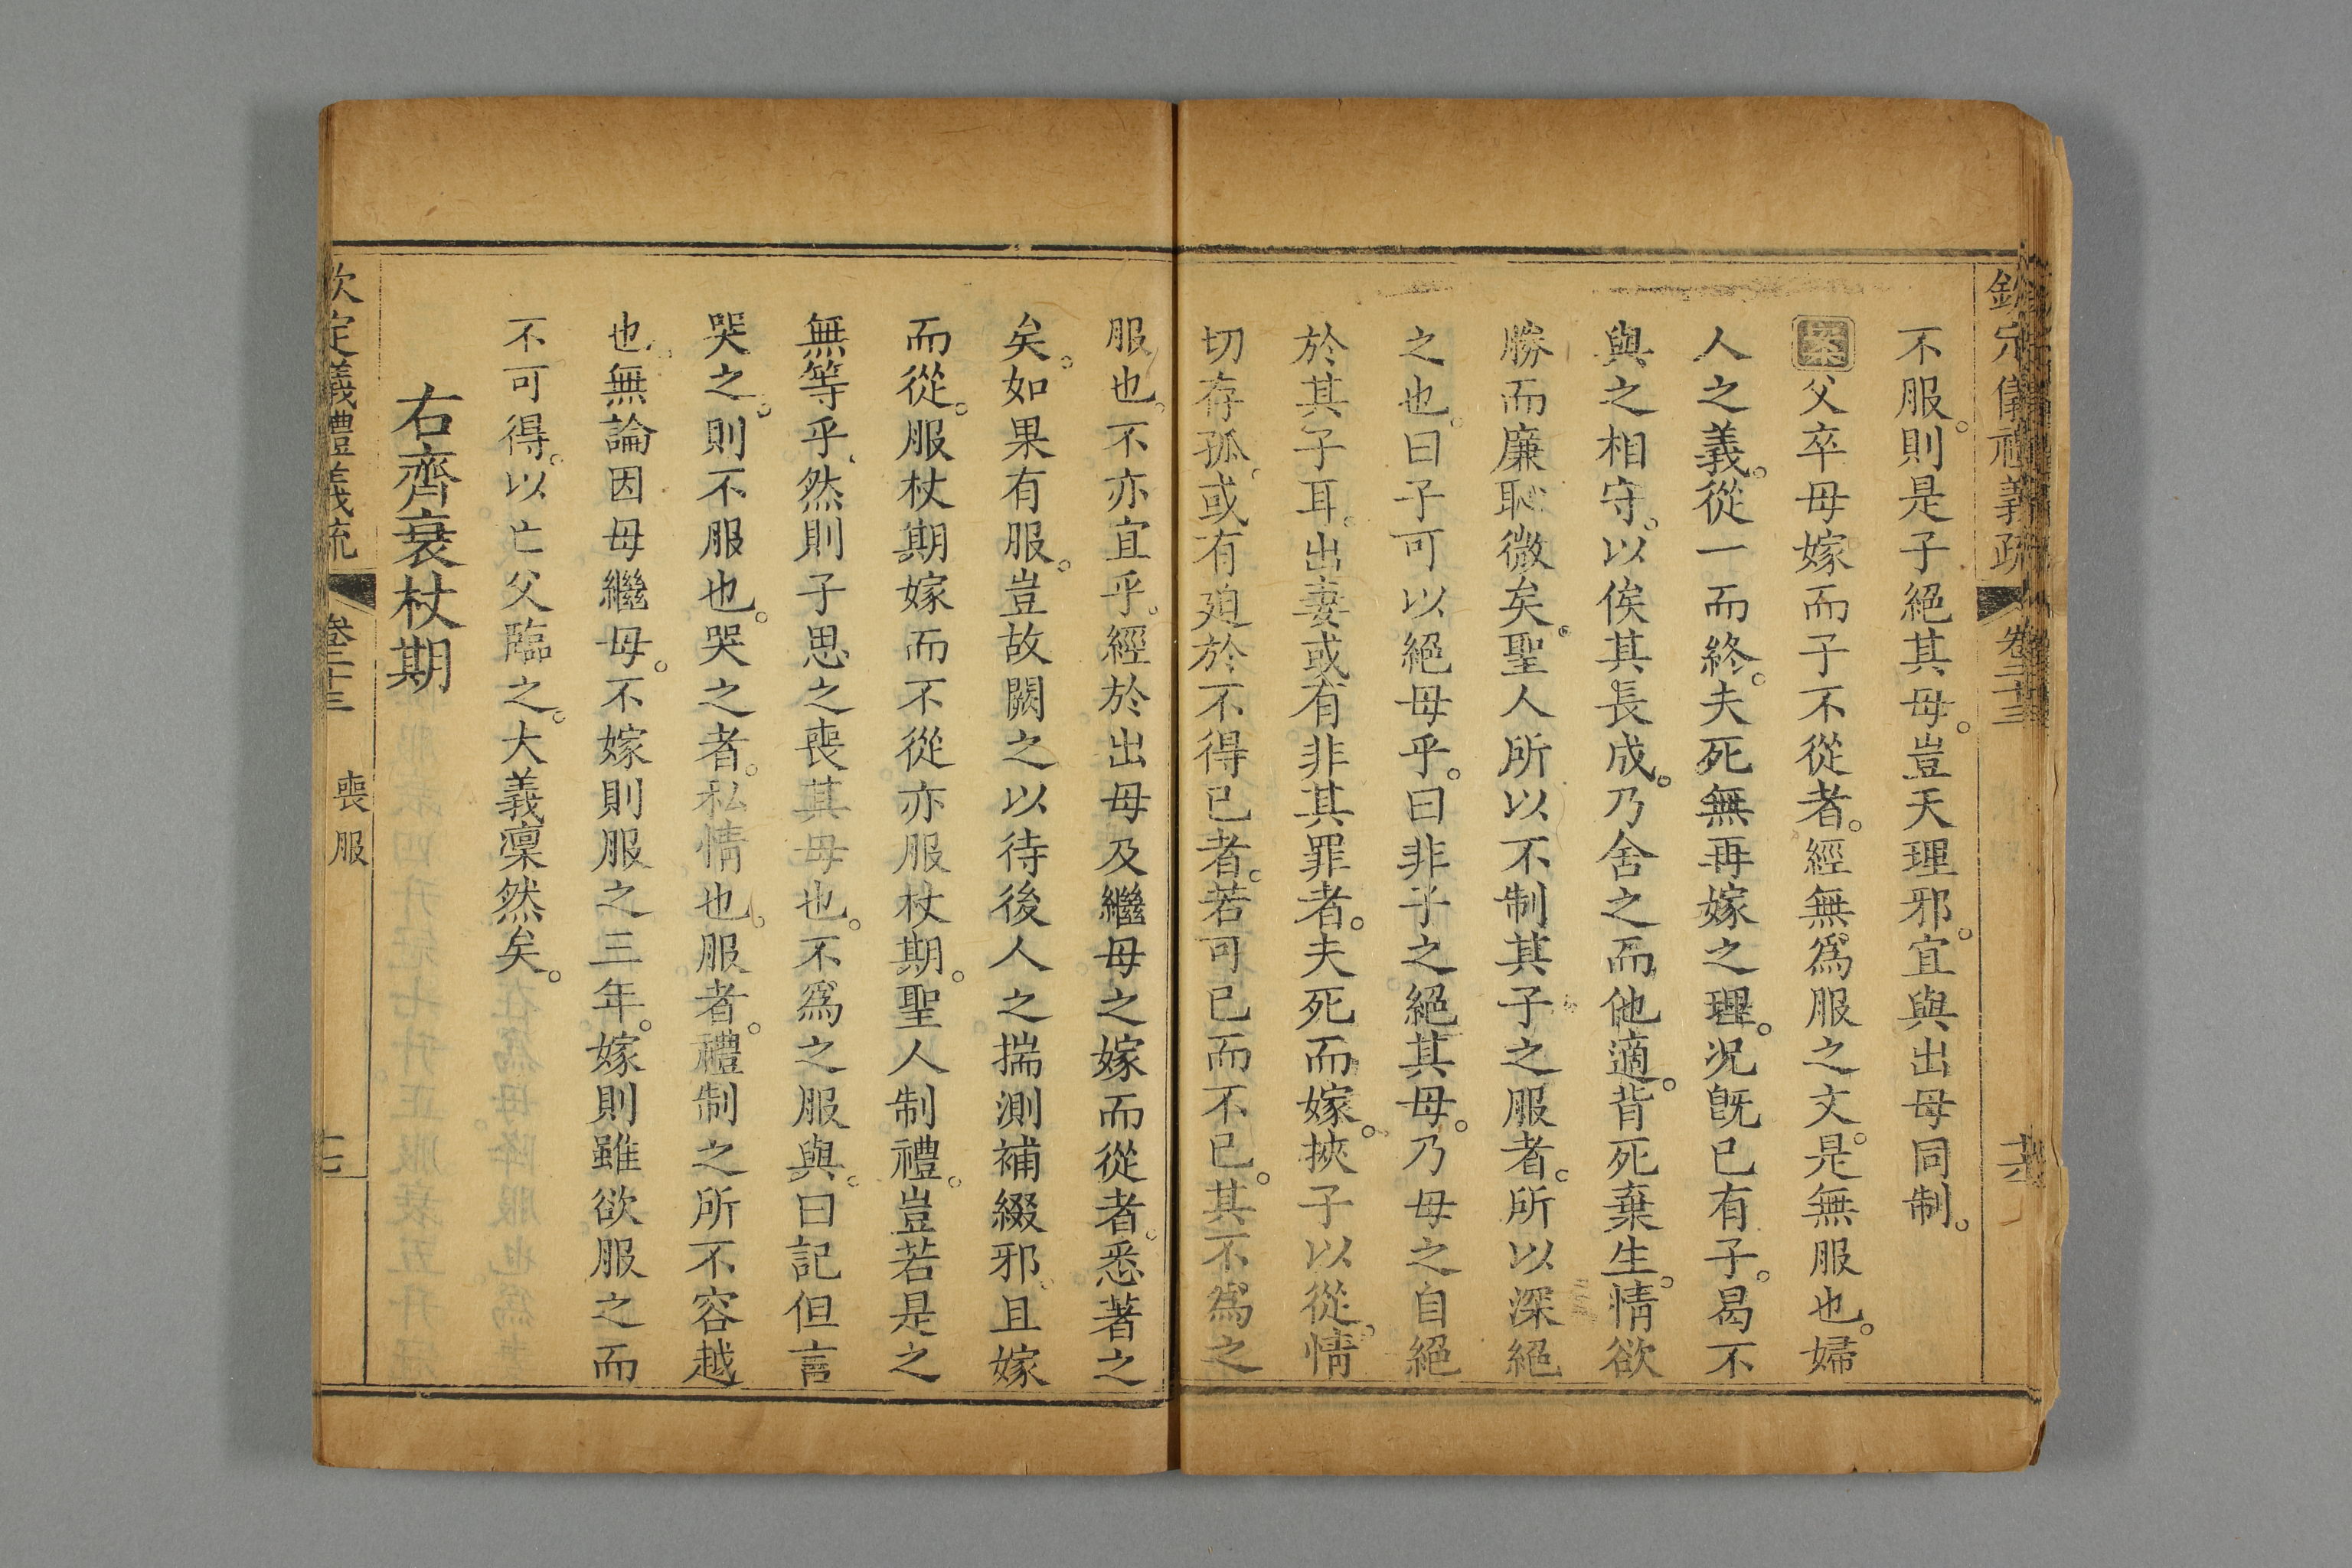 欽定儀禮義疏 卷二十三
不服。則是子絕其母。豈天理邪。宜與出母同制。
案父卒母嫁而子不從者。經無為服之文。是無服也。婦
人之義。從一而終。夫死無再嫁之理。况旣已有子。曷不
與之相守。以俟其長成。乃舍之而他適。背死棄生。情欲
勝而廉恥微矣。聖人所以不制其子之服者。所以深絕
之也。曰子可以絕母乎。曰非子之絕其母。乃母之自絕
於其子耳。出妻或有非其罪者。夫死而嫁。挾子以從。情
切存孤。或有廹於不得已者。若可已而不已。其不為之
服也。不亦宜乎。經於出母及繼母之嫁而從者。悉著之
矣。如果有服。豈故闕之以待後人之揣測補綴邪。且嫁
而從。服杖期嫁而不從亦服杖期。聖人制禮。豈若是之
無等乎。然則子思之喪其母也。不為之服與。曰記但言
哭之。則不服也。哭之者。私情也。服者。禮制之所不容越
也。無論因母繼母。不嫁則服之三年。嫁則雖欲服之而
不可得。以亡父臨之。大義凜然矣。
右齊衰杖期
欽定儀禮義疏 卷二十三 喪服 十七